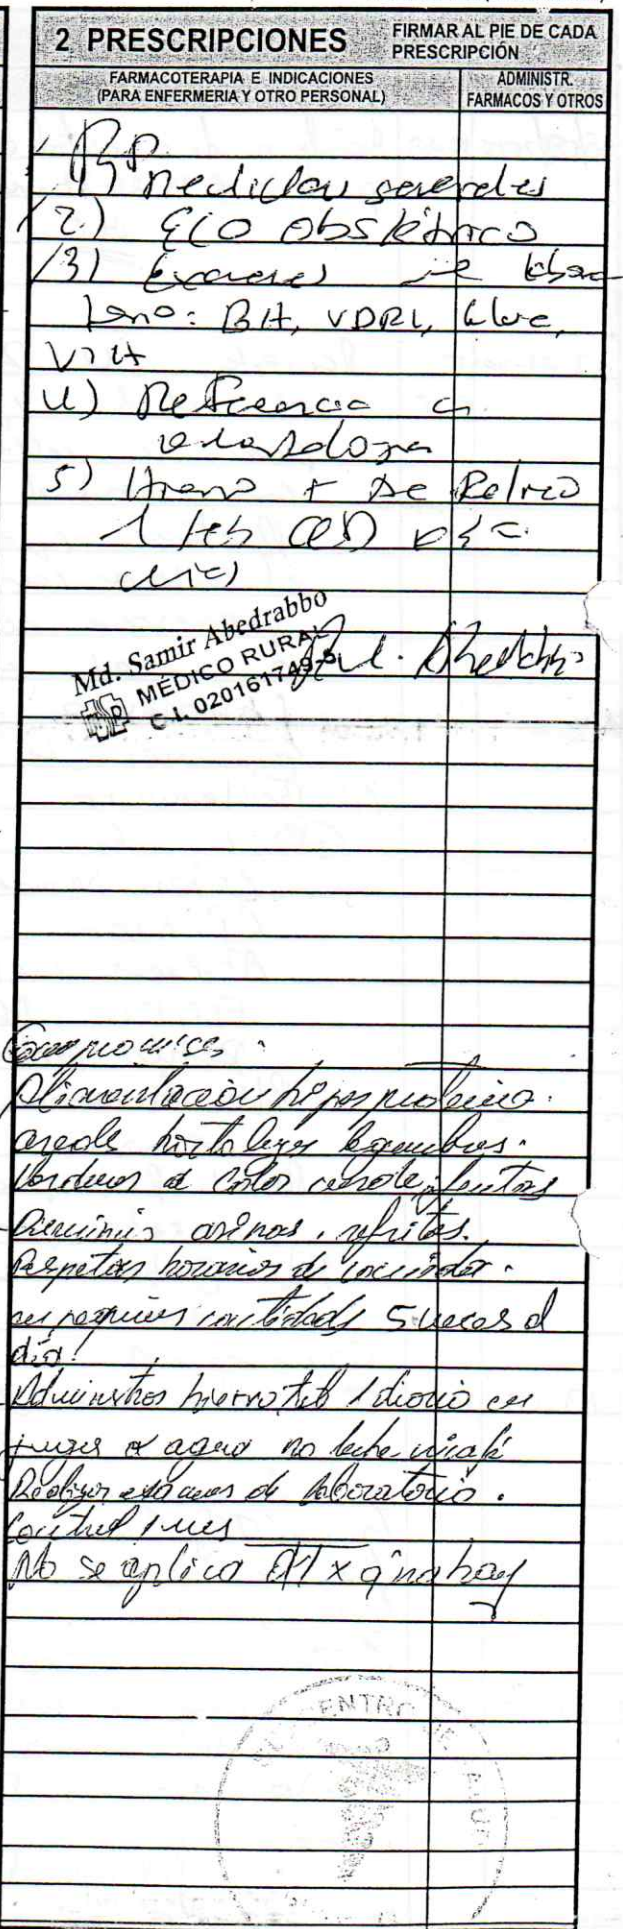 2 PRESCRIPCIONES
FIRMAR AL PIE DE CADA
PRESCRIPCIÓN
FARMACOTERAPIA E INDICACIONES
(PARA ENFERMERIA Y OTRO PERSONAL)
ADMINISTR.
FARMACOS Y OTROS
RP
1) Medidas generales
2.) ECO Obstétrico
3) Examenes de Labora
torio: BH, VDRL, Gluc,
VIH
4) Referencia a
5) Hierro + Ac Folico
1 tab
dias
Md. Samir Abedrabbo
MÉDICO RURAL
C.I. 020161749-5
Compromisos:
Alimentación hiperproteica.
hortalizas legumbres.
Verduras d color verde, frutas
Disminuir arinas, refritos.
Respetar horarios de comidas.
en pequeñas cantidades 5 veces al
día.
Administrar hierro tab 1 diario en
jugos o agua no leche ni café
Realizar examenes de laboratorio.
Control 1 mes
No se aplica dT x q' no hay
CENTRO DE SALUD